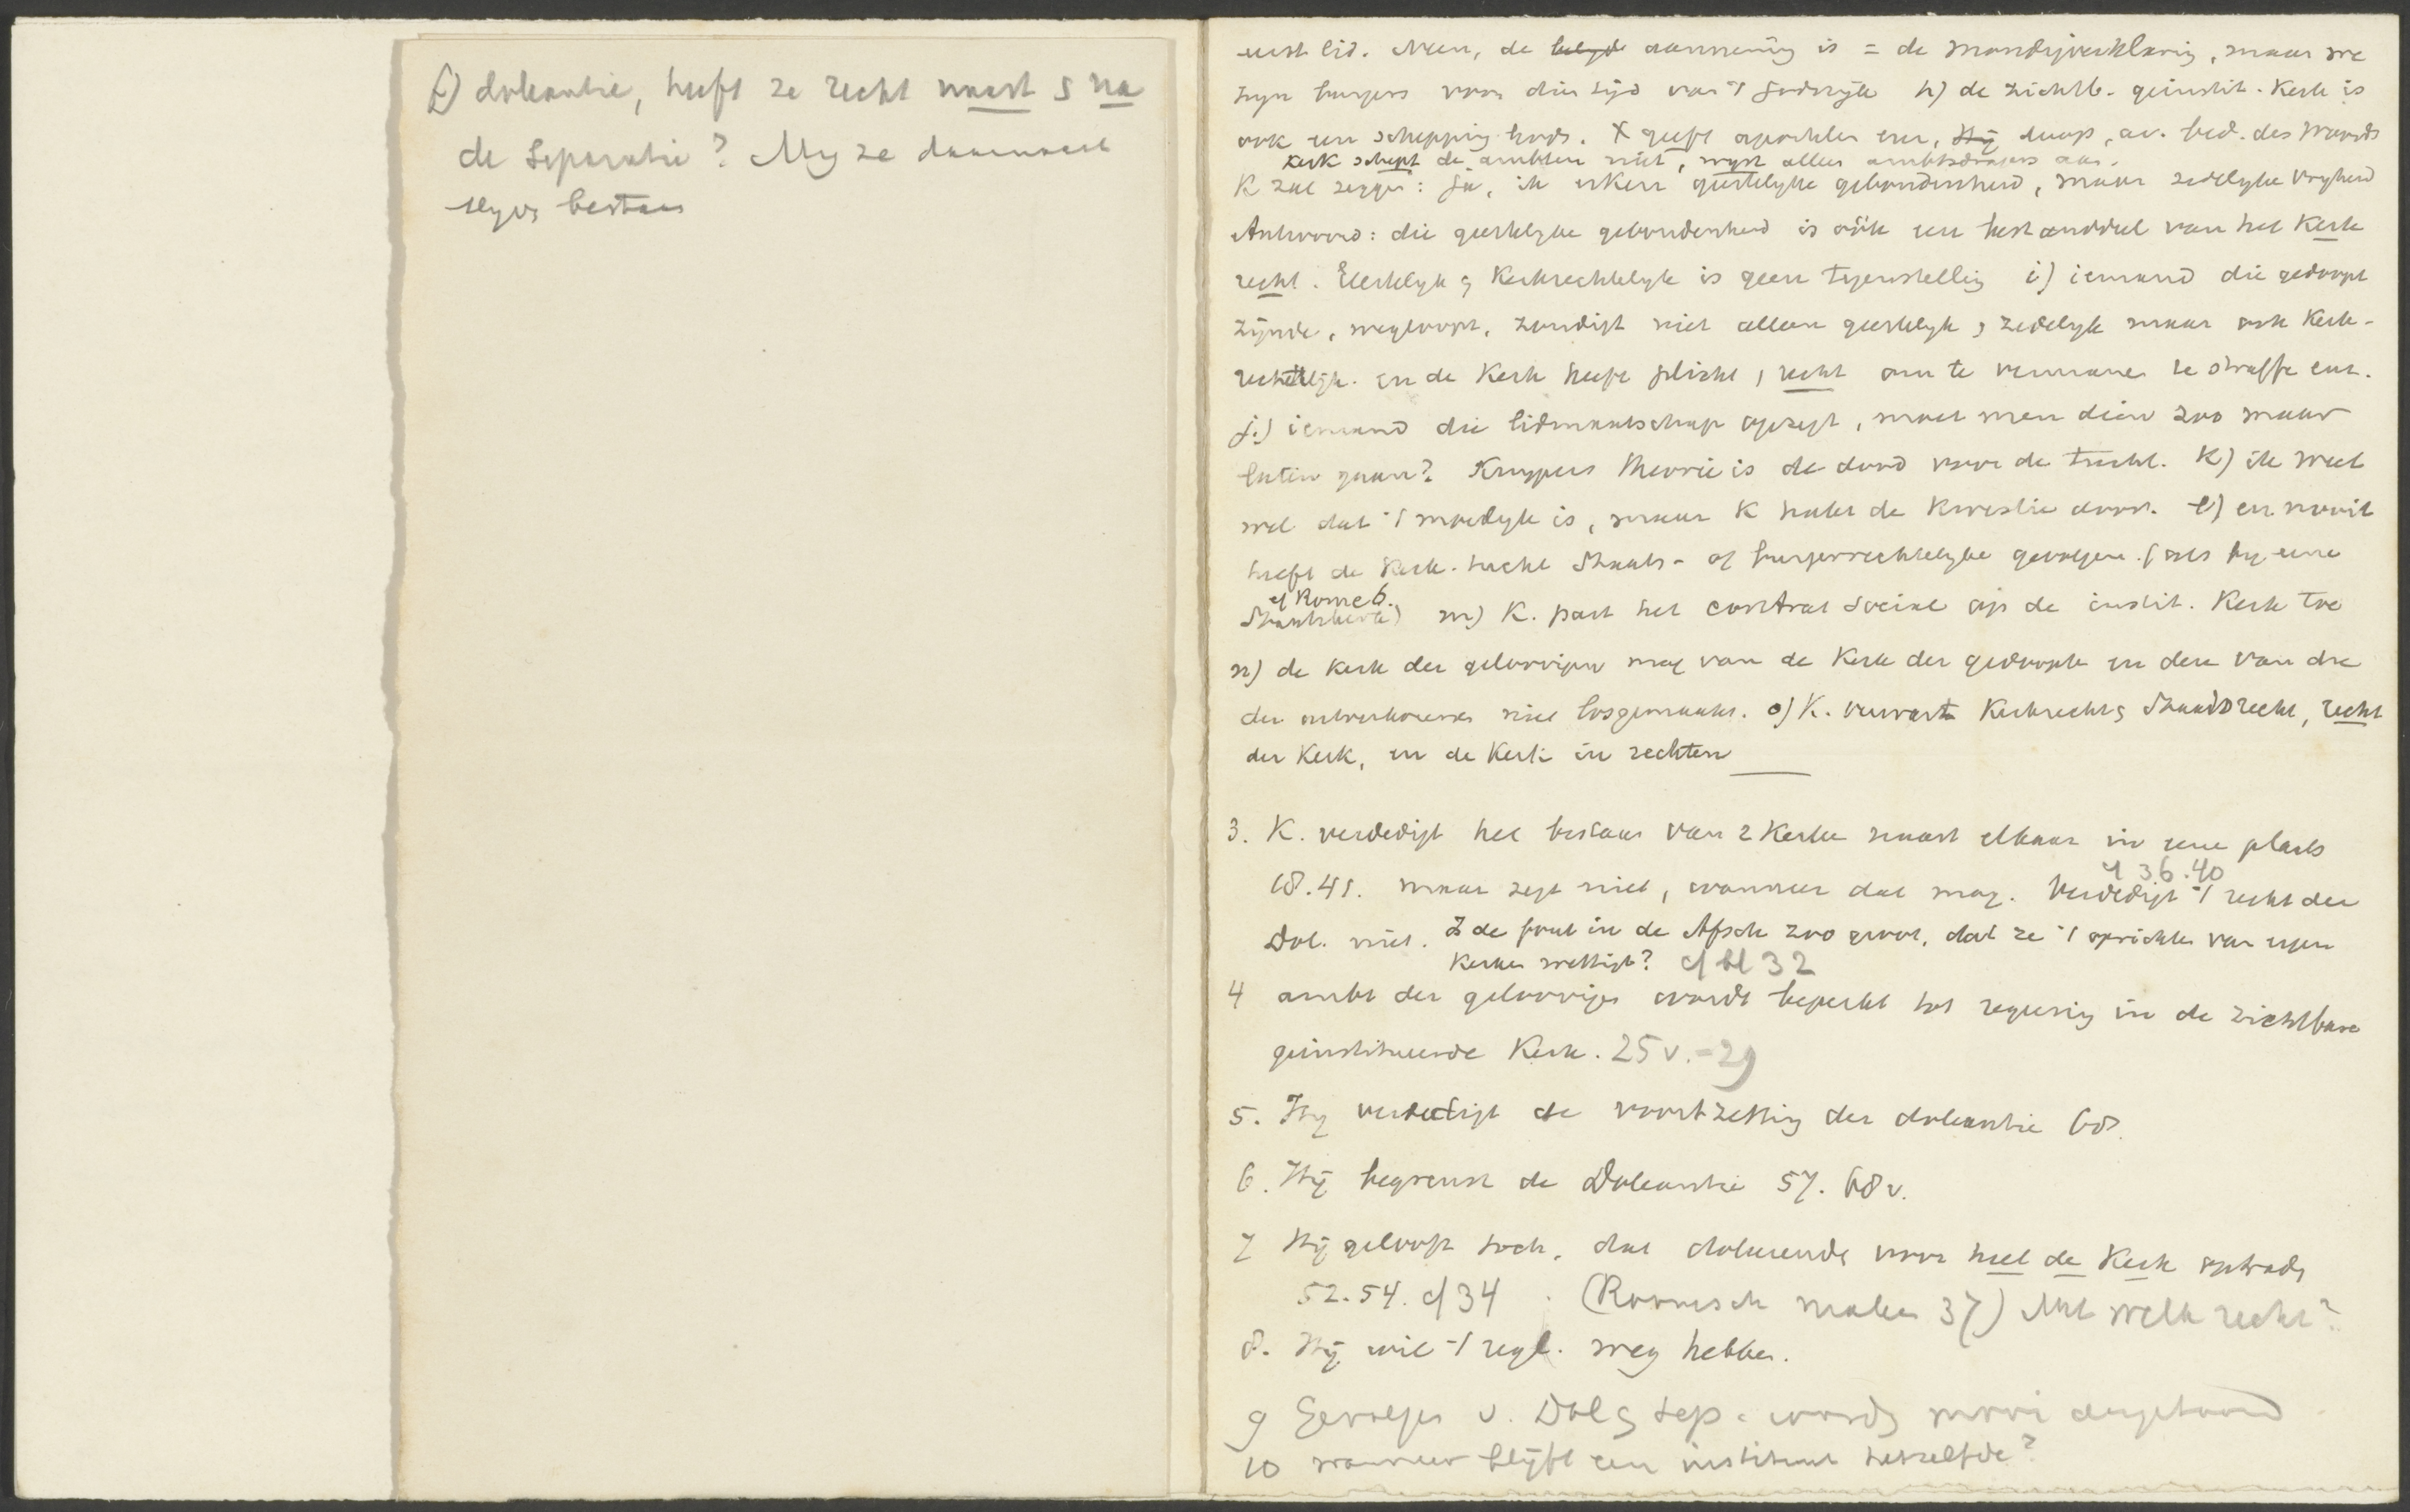 f) doleantie, heeft ze recht naast & na
de Separatie? Mag ze daarnaast
blyven bestaan
eerst lid. Neen, de belyd aanneming is = de mondigverklaring, maar we
zyn burgers voor dien tijd van 't Godsryk h) de zichtb. geinstit. Kerk is
ook een schepping Gods. X geeft apostelen enz, Hij doop, av. bed. des Woords
kerk schept de ambten niet, wyst alleen ambtsdragers aan.
K zal zeggen: Ja, ik erken geestelyke gebondenheid, maar zedelyke vryheid
Antwoord: die geestelyke gebondenheid is óók een bestanddeel van het Kerk
recht. Geestelyk & Kerkrechtelyk is geen tegenstelling i) iemand die gedoopt
zijnde, wegloopt, zondigt niet alleen geestelyk & zedelyk maar ook Kerk-
rechtelijk. en de Kerk heeft plicht, recht om te vermanen te straffe enz.
j.) iemand die lidmaatschap opzegt, moet men dien zoo maar
laten gaan? Kuypers theorie is de dood voor de tucht. K) ik weet
wel dat 't moeilyk is, maar K hakt de kwestie door. l) en nooit
heeft de Kerk. tucht Staats- of burgerrechtelyke gevolgen. (als by eene
of Rome 6.
Staatskerk) m) K. past het contrat Social op de instit. Kerk toe
n) de kerk der geloovigen mag van de Kerk der gedoopte en deze van die
der uitverkorenen niet losgemaakt. o) K. verwart Kerkrecht & Staatsrecht, recht
der Kerk, en de Kerk in rechten
3. K. verdedigt het bestaan van 2 Kerken naast elkaar in eene plaats
cf 36.40
68.41. maar zegt niet, wanneer dat mag. Verdedigt 't recht der
Dol. niet. Is de fout in de Afsch zoo groot, dat ze 't oprichten van eigen
kerken wettigt? cf bl 32
4 ambt der geloovigen wordt beperkt tot regeering in de zichtbare
geinstitueerde Kerk. 25 v. - 29
5. Hy verdedigt de voortzetting der doleantie 68.
6. Hij begrenst de Doleantie 57. 68 v.
7 Hij gelooft toch, dat doleerende voor heel de Kerk optrad,
52.54. cf 34 . (Roomsch maken 37) Met welk recht?
8. Hij wil 't regl. weg hebben.
9 Gevolgen v. Dol & Sep. worden mooi aangetoond
10 wanneer blijft een instituut hetzelfde?